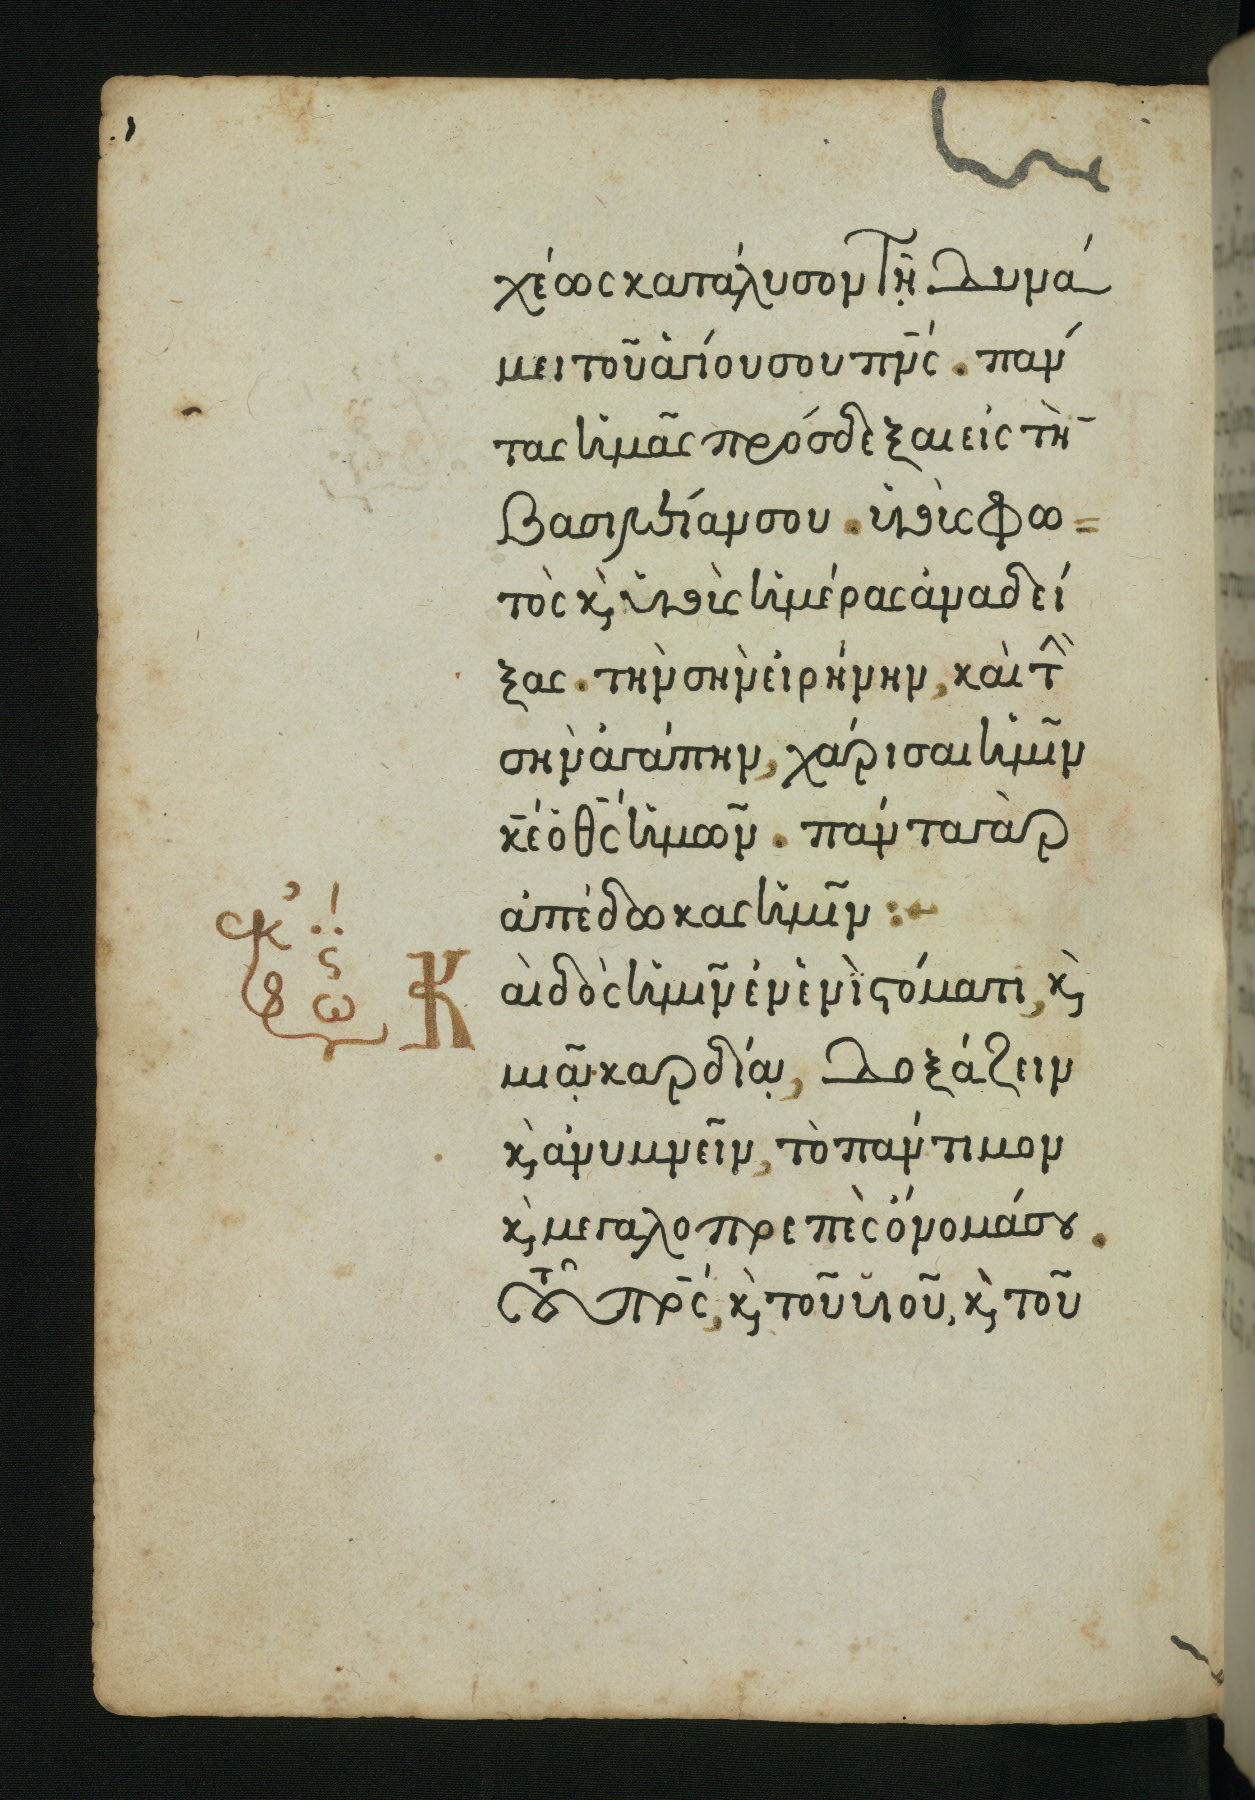 χέως κατάλυσον τῇ δυνά
μει τοῦ ἁγίου σου πν̅ς . πάν
τας ἡμᾶς πρόσδεξαι εἰς τὴ̅
βασιλείαν σου . υἱοὺς φω=
τὸς κ̀ υἱοὺς ἡμέρας ἀναδεί
ξας . τὴν σὴν εἰρήνην, καὶ τ
σὴν ἀγάπην, χάρισαι ἡμῖν
κ̅ε ὁ θ̅ς ἡμῶν . πάντα γὰρ
ἀπέδωκας ἡμῖν :
Καὶ δὸς ἡμῖν ἐν ἑνὶ στόματι, κ̀
μιᾷ καρδίᾳ, δοξάζειν
κ̀ ἀνυμνεῖν, τὸ πάντιμον
κ̀ μεγαλοπρεπὲς ὄνομά σου .
τοῦ πρ̅ς, κ̀ τοῦ υἱοῦ, κ̀ τοῦ